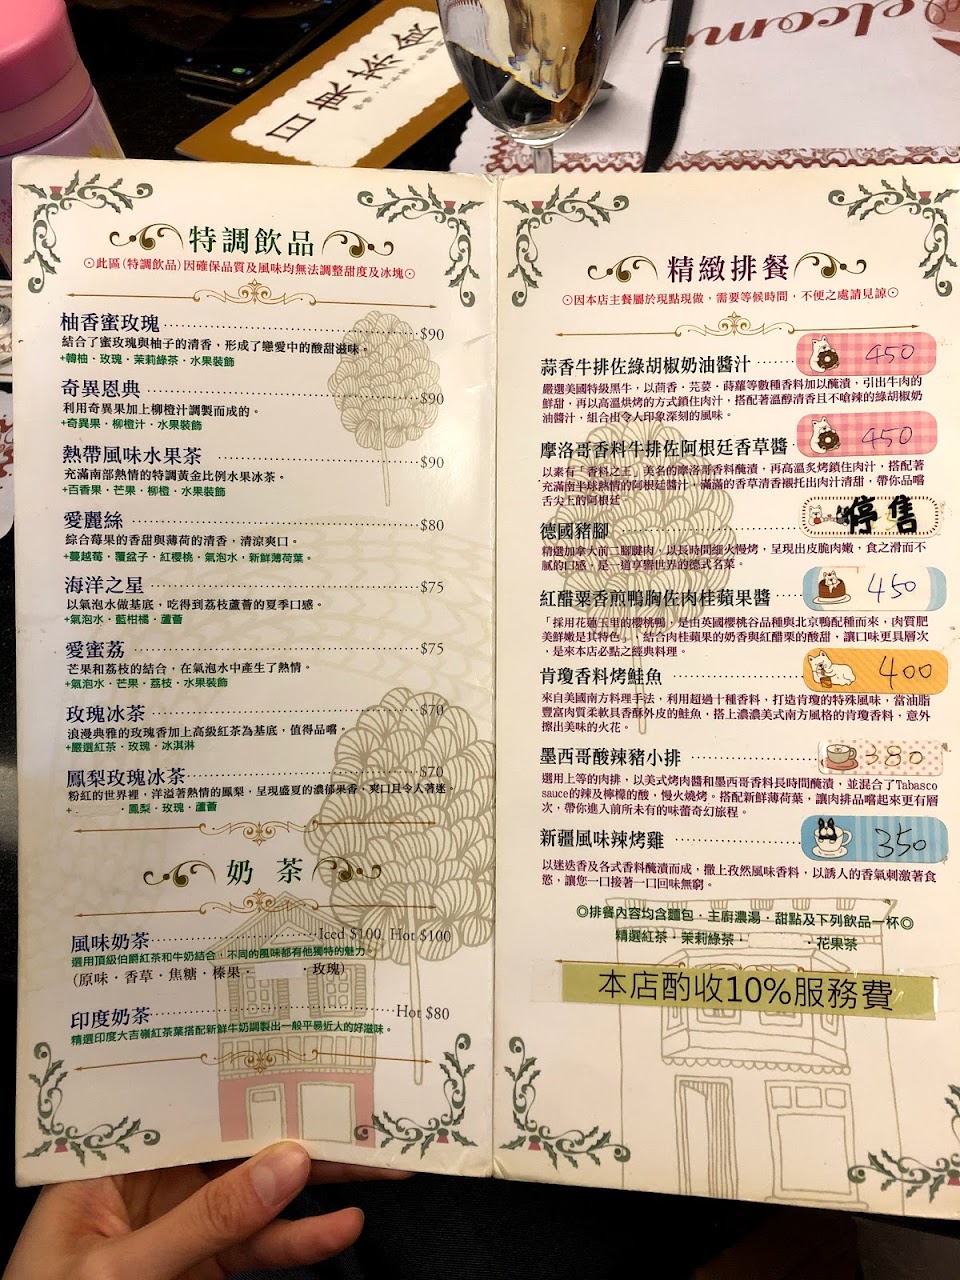 Welcome
日東茶會
特調飲品
⊙此區(特調飲品)因確保品質及風味均無法調整甜度及冰塊⊙
柚香蜜玫瑰 $90
結合了蜜玫瑰與柚子的清香，形成了戀愛中的酸甜滋味。
+韓柚·玫瑰·茉莉綠茶·水果裝飾
奇異恩典 $90
利用奇異果加上柳橙汁調製而成的。
+奇異果·柳橙汁·水果裝飾
熱帶風味水果茶 $90
充滿南部熱情的特調黃金比例水果冰茶。
+百香果·芒果·柳橙·水果裝飾
愛麗絲 $80
綜合莓果的香甜與薄荷的清香，清涼爽口。
+蔓越莓·覆盆子·紅櫻桃·氣泡水，新鮮薄荷葉。
海洋之星 $75
以氣泡水做基底，吃得到荔枝蘆薈的夏季口感。
+氣泡水·藍柑橘·蘆薈
愛蜜荔 $75
芒果和荔枝的結合，在氣泡水中產生了熱情。
+氣泡水·芒果·荔枝·水果裝飾
玫瑰冰茶 $70
浪漫典雅的玫瑰香加上高級紅茶為基底，值得品嚐。
+嚴選紅茶·玫瑰·冰淇淋
鳳梨玫瑰冰茶 $70
粉紅的世界裡，洋溢著熱情的鳳梨，呈現盛夏的濃郁果香，爽口且令人著迷。
+ 鳳梨·玫瑰·蘆薈
奶 茶
風味奶茶 Iced $100, Hot $100
選用頂級伯爵紅茶和牛奶結合，不同的風味都有他獨特的魅力。
(原味·香草·焦糖·榛果· ·玫瑰)
印度奶茶 Hot $80
精選印度大吉嶺紅茶葉搭配新鮮牛奶調製出一般平易近人的好滋味。
精緻排餐
⊙因本店主餐屬於現點現做，需要等候時間，不便之處請見諒⊙
蒜香牛排佐綠胡椒奶油醬汁 450
嚴選美國特級黑牛，以茴香·芫荽·蒔蘿等數種香料加以醃漬，引出牛肉的
鮮甜，再以高溫烘烤的方式鎖住肉汁，搭配著溫醇清香且不嗆辣的綠胡椒奶
油醬汁，組合出令人印象深刻的風味。
摩洛哥香料牛排佐阿根廷香草醬 450
以素有「香料之王」美名的摩洛哥香料醃漬，再高溫炙烤鎖住肉汁，搭配著
充滿南半球熱情的阿根廷醬汁，滿滿的香草清香襯托出肉汁清甜，帶你品嚐
舌尖上的阿根廷。
德國豬腳 停售
精選加拿大前二腳腱肉，以長時間細火慢烤，呈現出皮脆肉嫩，食之滑而不
膩的口感，是一道享譽世界的德式名菜。
紅醋粟香煎鴨胸佐肉桂蘋果醬 450
「採用花蓮玉里的櫻桃鴨，是由英國櫻桃谷品種與北京鴨配種而來，肉質肥
美鮮嫩是其特色。」結合肉桂蘋果的奶香與紅醋栗的酸甜，讓口味更具層次
，是來本店必點之經典料理。
肯瓊香料烤鮭魚 400
來自美國南方料理手法，利用超過十種香料，打造肯瓊的特殊風味，當油脂
豐富肉質柔軟具香酥外皮的鮭魚，搭上濃濃美式南方風格的肯瓊香料，意外
擦出美味的火花。
墨西哥酸辣豬小排 380
選用上等的肉排，以美式烤肉醬和墨西哥香料長時間醃漬，並混合了Tabasco
sauce的辣及檸檬的酸，慢火燒烤。搭配新鮮薄荷葉，讓肉排品嚐起來更有層
次，帶你進入前所未有的味蕾奇幻旅程。
新疆風味辣烤雞 350
以迷迭香及各式香料醃漬而成，撒上孜然風味香料，以誘人的香氣刺激著食
慾，讓您一口接著一口回味無窮。
◎排餐內容均含麵包·主廚濃湯·甜點及下列飲品一杯◎
精選紅茶·茉莉綠茶· ·花果茶
本店酌收10%服務費